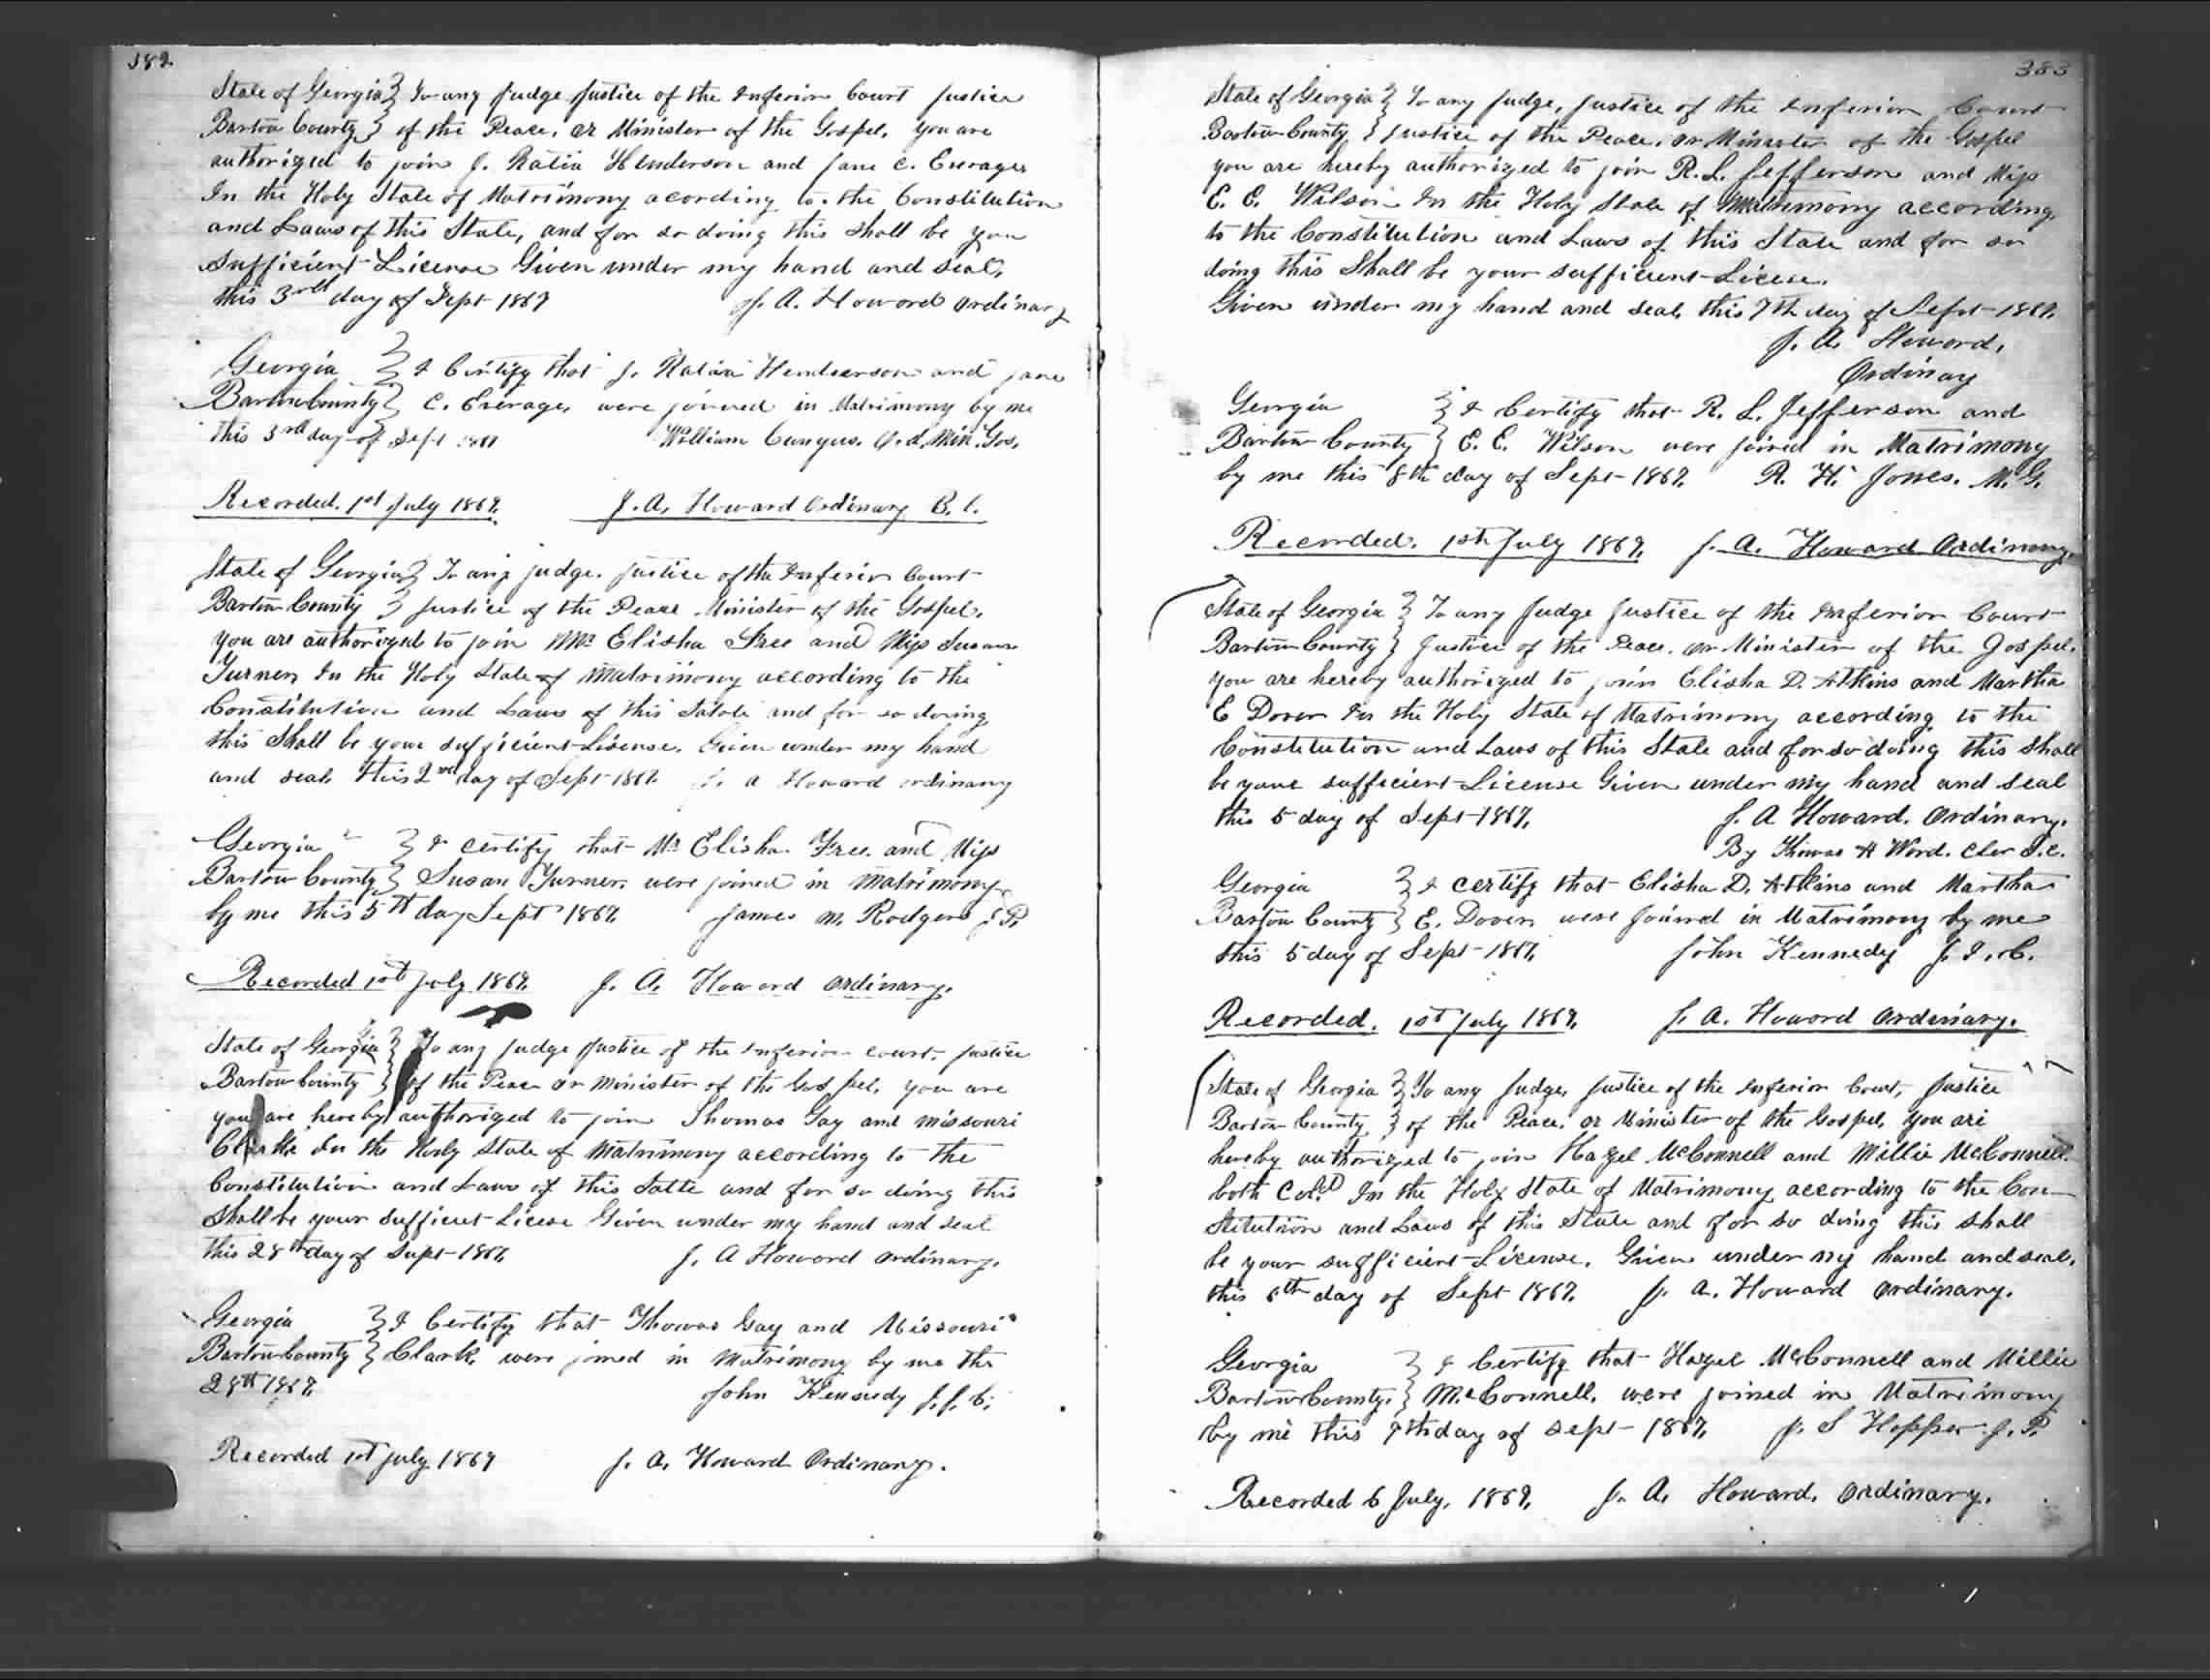 382
State of Georgia } To any Judge Justice of the Inferior Court Justice
Bartow County } of the Peace, or Minister of the Gospel. you are
authorized to join J. Henderson and Jane C.
In the Holy State of Matrimony acording to the Constitution
and Laws of this State, and for so doing this shall be you
sufficient License Given under my hand and seal,
this 3rd day of Sept 1867 J. A. Howard ordinary
Georgia } I Certify that J. Henderson and Jane
Bartow County } C. were joined in Matrimony by me
this 3rd day of Sept William Ord. Min. Gos.
Recorded. 1st July 1869. J. A. Howard Ordinary B. C.
State of Georgia } To any judge. Justice of the Inferior Court
Bartow County } Justice of the Peace Minister of the Gospel.
you are authorized to join Mr Elisha Free and Miss Susan
Turner In the Holy State of Matrimony according to the
Constitution and Laws of this Satate and for so doing
this Shall be your sufficient Lisense. Given under my hand
and seal this 2nd day of Sept 1867. J. A Howard ordinary
Georgia } I certify that Mr Elisha Free and Miss
Bartow County } Susan Turner were joined in Matrimony
by me this 5th day Sept 1867. James M. Rodgers J P.
Recorded 1st July 1869. J. A. Howard ordinary.
State of Georgia } To any Judge Justice of the Inferior court. Justice
Bartow County } of the Peace or Minister of the Gospel. you are
you are hereby authorized to join Thomas Gay and Missouri
Clarke In the Holy State of Matrimony according to the
Constitution and Laws of this Satte and for so doing this
Shall be your Sufficient Licese Given under my hand and seal
this 28th day of Sept 1867. J. A Howard ordinary.
Georgia } I Certify that Thomas Gay and Missouri
Bartow County } Clark, were joined in Matrimony by me the
28th 1867. John Kennedy J. J. C.
Recorded 1st July 1869 J. A. Howard Ordinary.
383
State of Georgia } To any Judge, Justice of the Inferior Court
Bartow County } Justice of the Peace, or Minister of the Gospel
you are hereby authorized to join R. L. Jefferson and Miss
E. E. Wilson In the Holy State of Matrimony according
to the Constitution and Laws of this State and for so
doing this Shall be your sufficient Licese.
Given under my hand and seal this 7th day of Sept 1867.
J. A. Howard,
Ordinay
Georgia } I Certify that R. L. Jefferson and
Bartow County } E. E. Wilson were joined in Matrimony
by me this 8th day of Sept 1867. R. H. Jones. M. G.
Recorded. 1st July 1869. J. A. Howard Ordinary.
State of Georgia } To any Judge Justice of the Inferior Court
Bartow County } Justice of the Peace. or Minister of the Gospel.
you are hereby authorized to join Elisha D. Atkins and Martha
E Dover In the Holy State of Matrimony according to the
Constitution and Laws of this State and for so doing this shall
be your sufficient License Given under my hand and seal
this 5 day of Sept 1867. J. A Howard. Ordinary.
By Thomas A Word. Cler S. C.
Georgia } I certify that Elisha D. Atkins and Martha
Bartow County } E. Dover, were joined in Matrimony by me
this 5 day of Sept 1867. John Kennedy J. I. C.
Recorded. 1st July 1869. J. A. Howard Ordinary.
State of Georgia } To any Judge, Justice of the Inferior Court, Justice
Bartow County } of the Peace, or Minister of the Gospel, you are
hereby authorized to join Hazel McConnell and Millie McConnell
both Cold In the Holy State of Matrimony according to the Con
stitution and Laws of this State and for so doing this shall
be your sufficient License. Given under my hand and seal.
this 6th day of Sept 1867. J. A. Howard Ordinary.
Georgia } I Certify that Hazel McConnell and Millie
Bartow County. } McConnell. were joined in Matrimony
by me this 7th day of Sept 1867. J. S Hopper J. P.
Recorded 6 July, 1869, J. A. Howard. Ordinary.